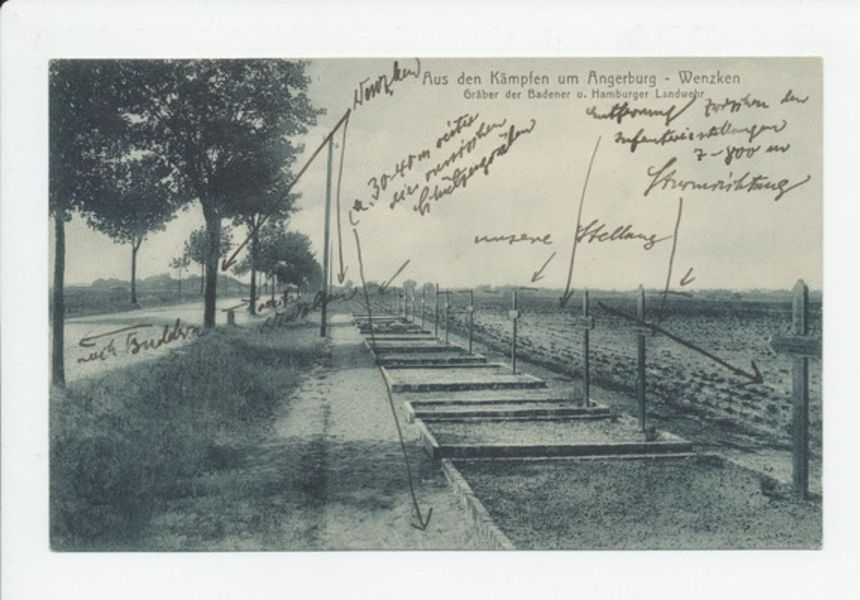 Aus den Kämpfen um Angerburg - Wenzken
Gräber der Badener u. Hamburger Landwehr
Entfernung zwischen den
Infanteriestellungen
7-800 m
ca. 30-40 m weiter
die russischen
Schützengräben
Sturmrichtung
unsere Stellung
nach Buddern
nach